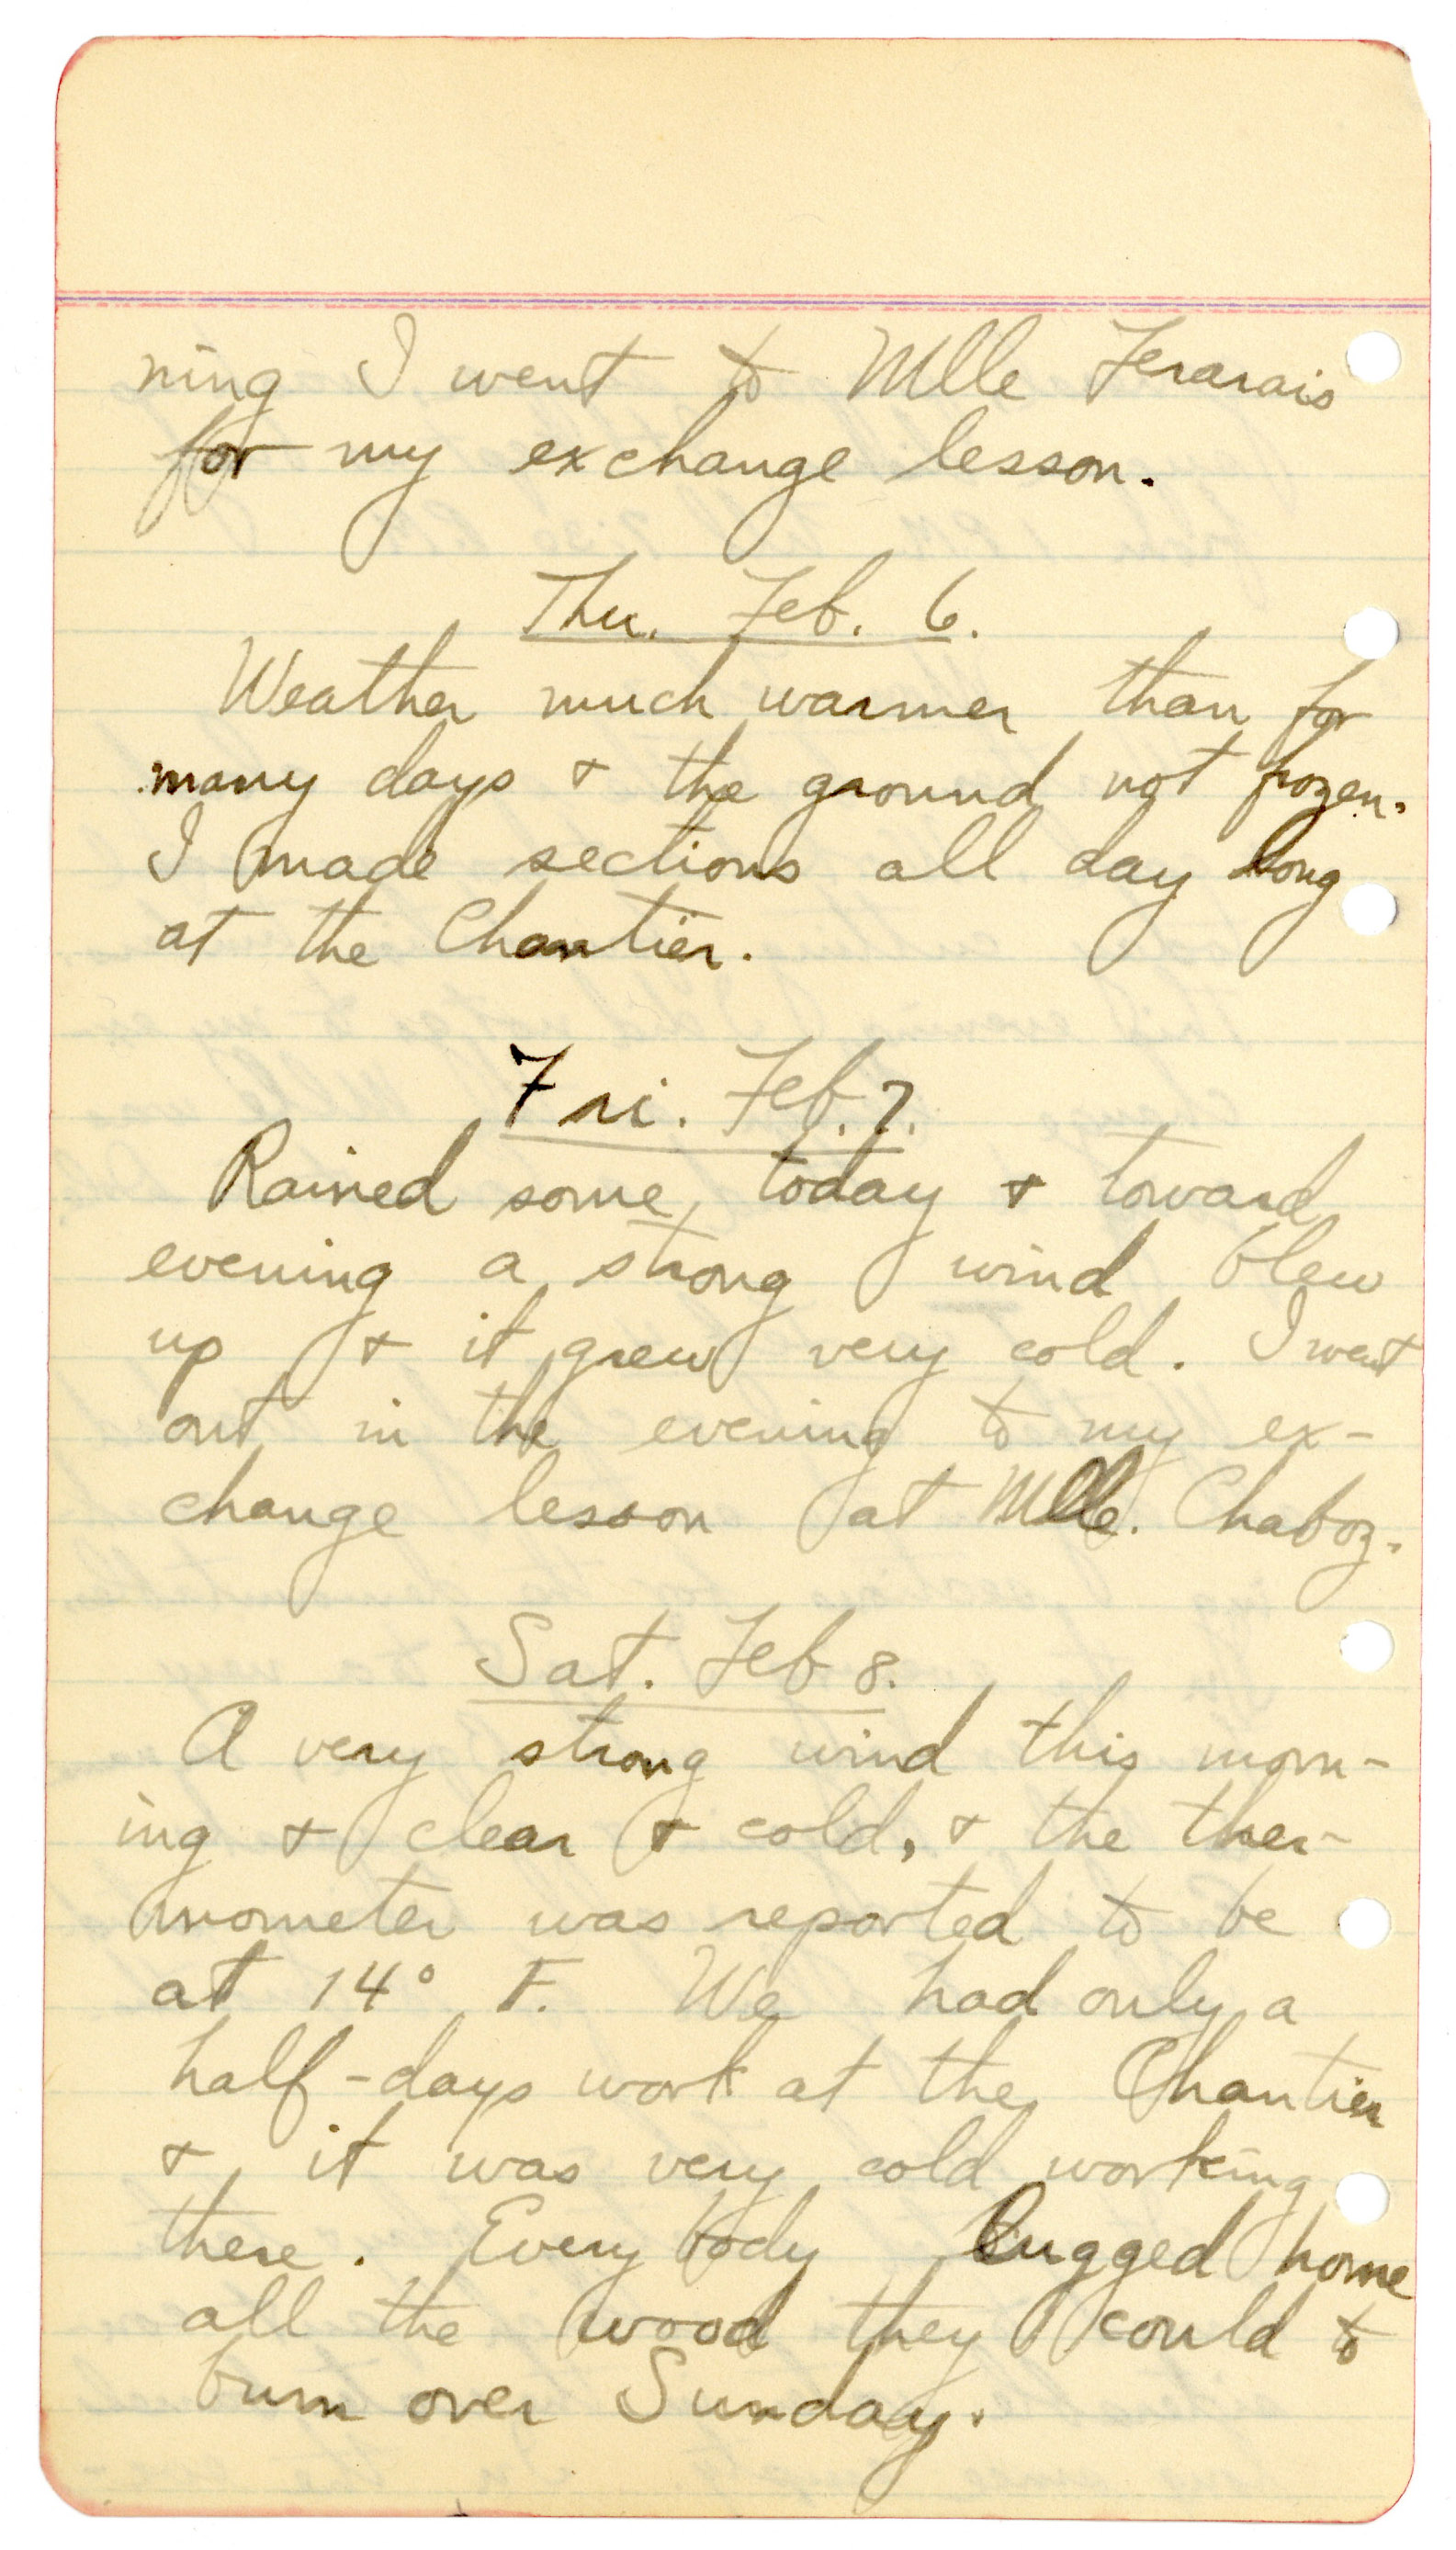 ning I went to Mlle Ferarais
for my exchange lesson.
Thu. Feb. 6.
Weather much warmer than for
many days & the ground not frozen.
I made sections all day long
at the Chantier.
Fri. Feb. 7.
Rained some today & toward
evening a strong wind blew
up & it grew very cold. I went
out in the evening to my ex-
change lesson at Mlle. Chaboz.
Sat. Feb 8.
A very strong wind this morn-
ing & clear & cold, & the ther-
mometer was reported to be
at 14° F. We had only a
half-days work at the Chantier
& it was very cold working
there. Every body lugged home
all the wood they could to
burn over Sunday.